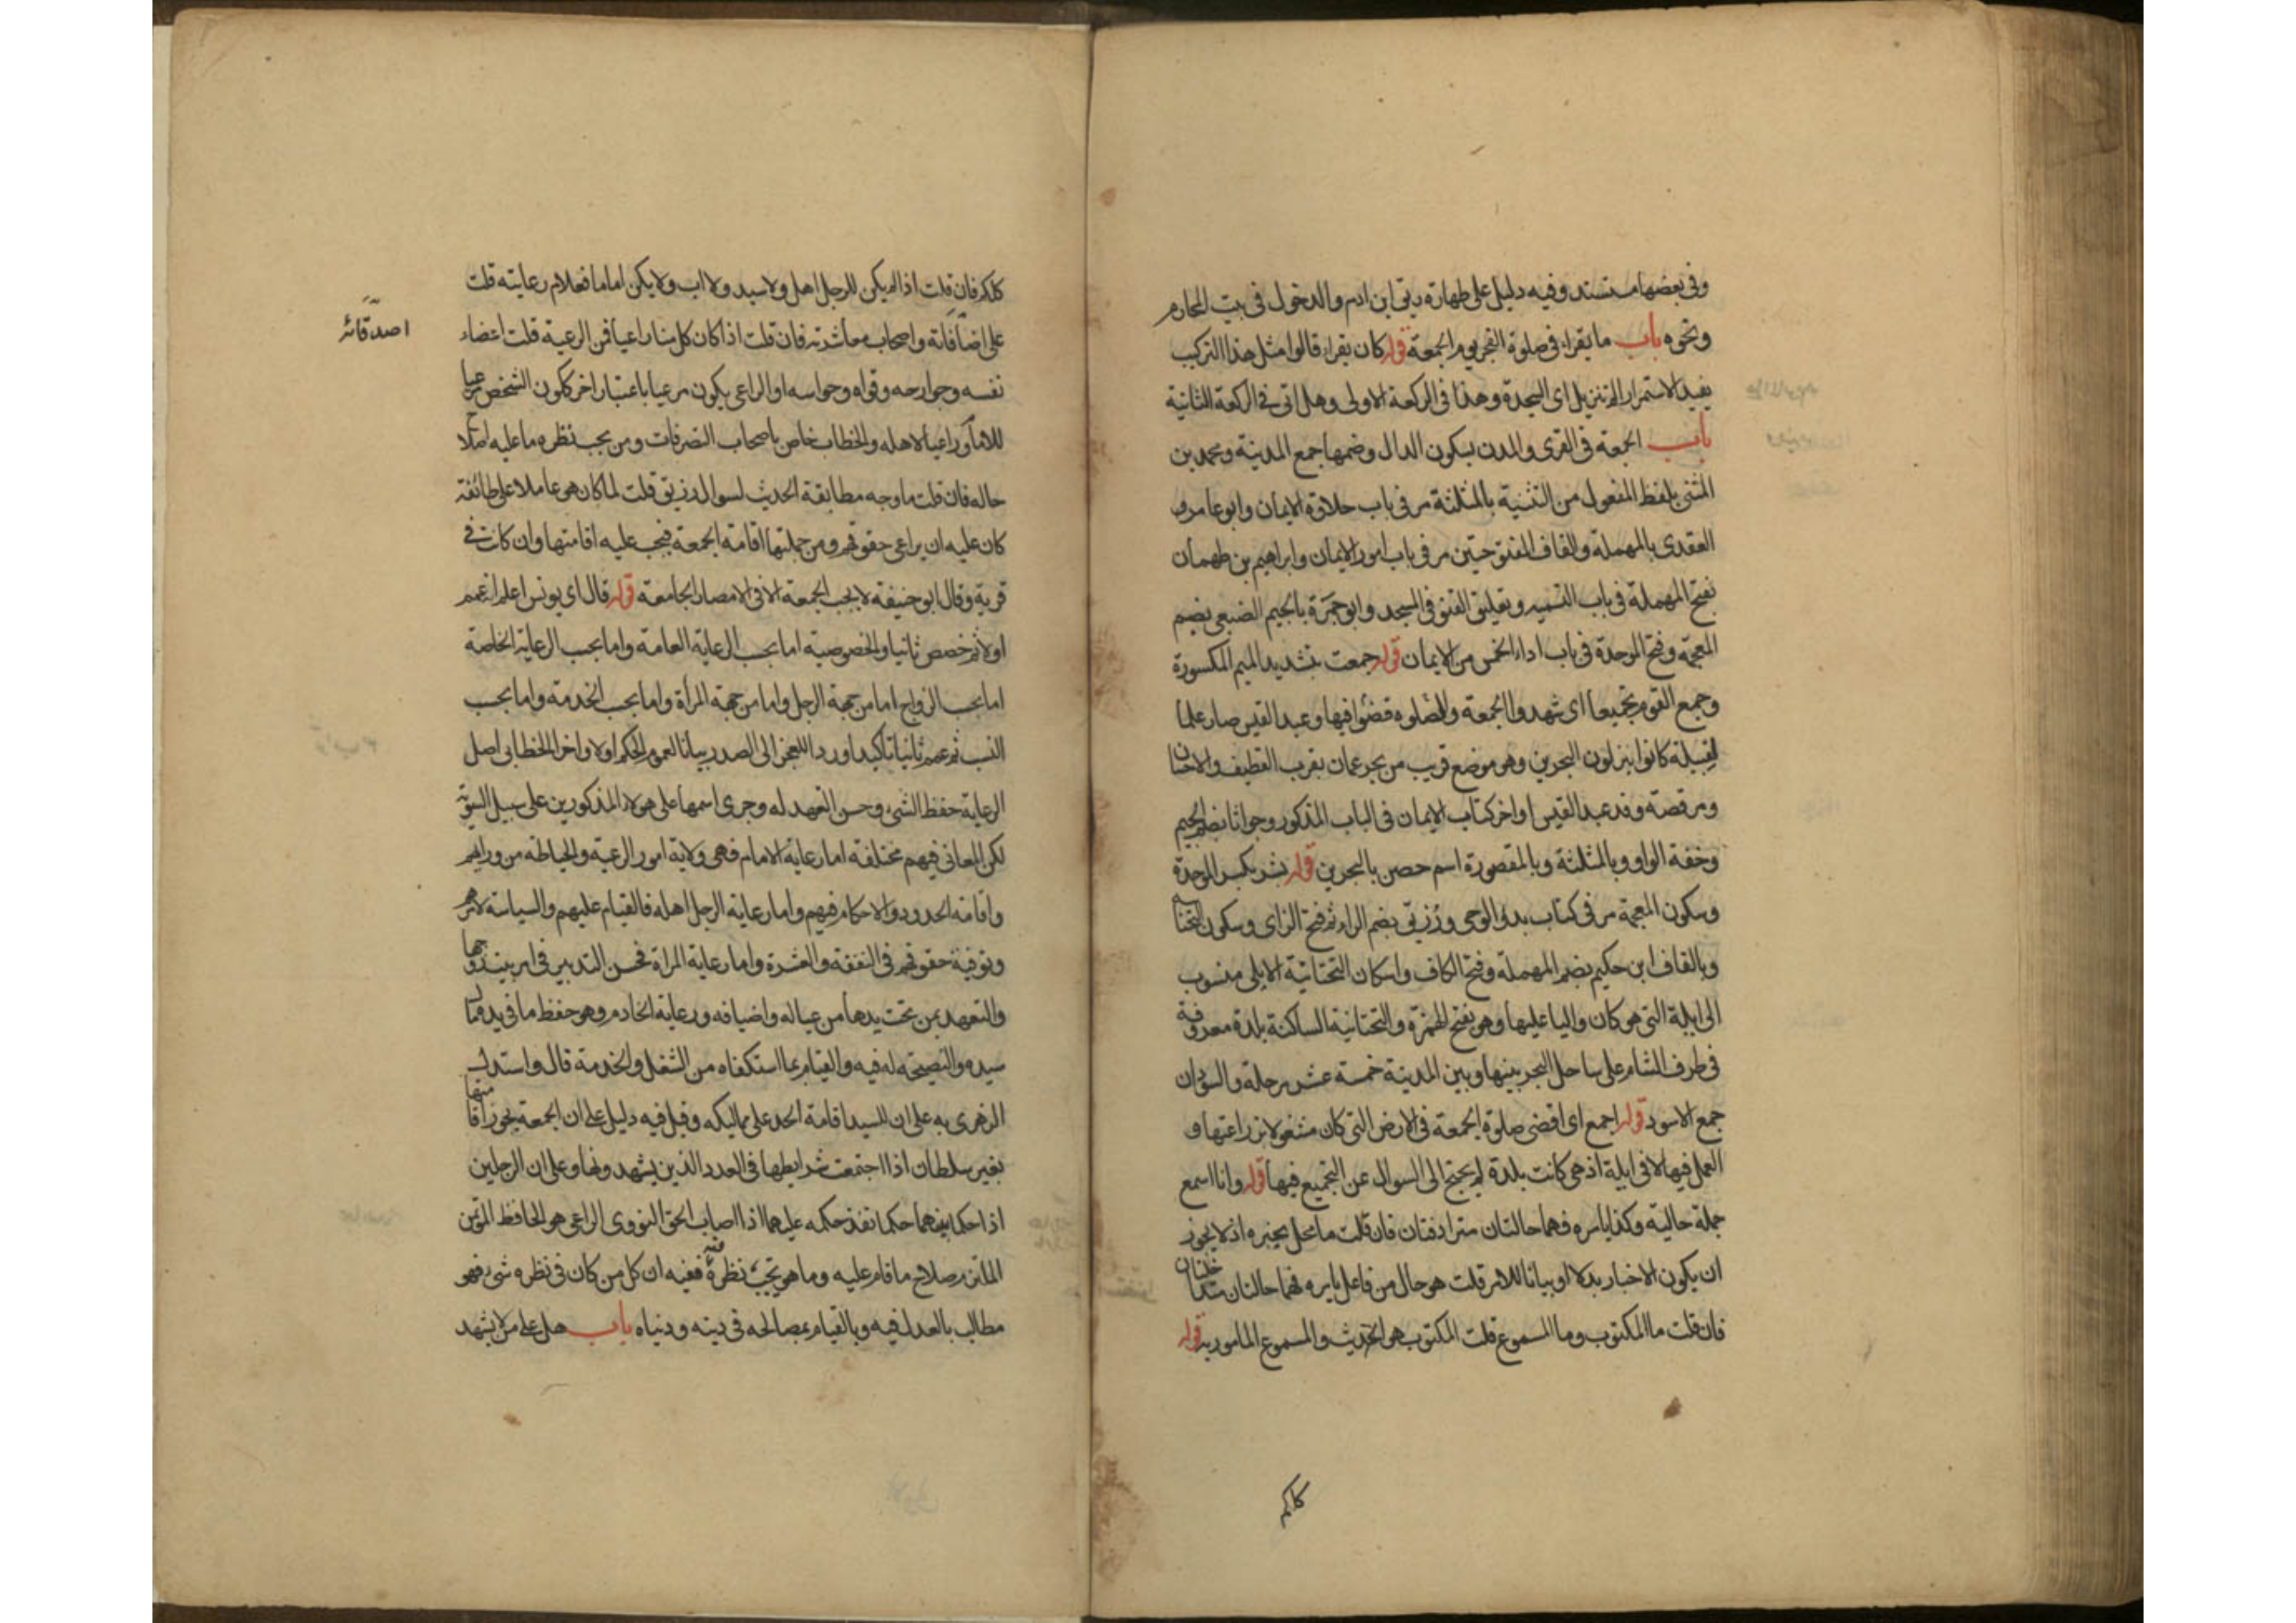 وفى بعضها مستسند وفيه دليل على طهارة ريق ابن ادم والدخول فى بيت المحارم
ونحوه باب ما يقراء فى صلوة الفجر يوم الجمعة قوله كان يقراء قالوا مثل هذا التركيب
يفيد الاستمرار الم تنزيل اى السجدة وهذا فى الركعة الاولى وهل اتى فى الركعة الثانية
باب الجمعة فى القرى والمدن بسكون الدال وضمها جمع المدينة ومحمد بن
المثنى بلفظ المفعول من التثنية بالمثلثة مر فى باب حلاوة الايمان وابو عامر هو
العقدى بالمهملة والقاف المفتوحتين مر فى باب امور الايمان وابراهيم بن طهمان
بفتح المهملة فى باب القسمة وتعليق القنو فى المسجد وابو جمرة بالجيم الضبعى بضم
المعجمة وفتح الموحدة فى باب اداء الخمس من الايمان قوله جمعت بتشديد الميم المكسورة
وجمع القوم تجميعا اى شهدوا الجمعة والصلوة قضوا فيها وعبد القيس صار علما
لقبيلة كانوا ينزلون البحرين وهو موضع قريب من بحر عمان بقرب القطيف والاحسان
ومر قصة وفد عبد القيس اواخر كتاب الايمان فى الباب المذكور وجواثا بضم الجيم
وخفة الواو وبالمثلثة وبالمقصورة اسم حصن بالبحرين قوله بشر بكسر الموحدة
وسكون المعجمة مر فى كتاب بدؤ الوحى ورزيق بضم الراء ثم فتح الزاى وسكون التحتانية
وبالقاف ابن حكيم بضم المهملة وفتح الكاف واسكان التحتانية الايلى منسوب
الى ايلة التى هو كان واليا عليها وهو بفتح الهمزة والتحتانية الساكنة بلدة معروفة
فى طرف الشام على ساحل البحر بينها وبين المدينة خمسة عشر مرحلة والسودان
جمع الاسود قوله اجمع اى اقضى صلوة الجمعة فى الارض التى كان مشغولا بزراعتها و
العمل فيها لا فى ايلة اذ هى كانت بلدة لم يحتج الى السوال عن التجميع فيها قوله وانا اسمع
جملة حالية وكذا يامره فهما حالتان مترادفتان فان قلت ما محل يخبره اذ لا يجوز
ان يكون الاخبار بدلا او بيانا للامر قلت هو حال من فاعل يامره فهما حالتان متداخلتان
فان قلت ما المكتوب وما المسموع قلت المكتوب هو الحديث والمسموع المامور به قوله
كلكم
كلكم فان قلت اذا لم يكن للرجل اهل ولا سيد ولا اب ولا يكن اماما فعلام رعايته قلت
على اصدقائه واصحاب معاشرته فان قلت اذا كان كل منا راعيا فمن الرعية قلت اعضاء
اصدقائه
نفسه وجوارحه وقواه وحواسه او الراعى يكون مرعيا باعتبار اخر ككون الشخص مرعيا
للامام وراعيا لاهله والخطاب خاص باصحاب التصرفات ومن يجب نظره ما عليه اصلاح
حاله فان قلت ما وجه مطابقة الحديث لسوال رزيق قلت لما كان هو عاملا على طائفة
كان عليه ان يراعى حقوقهم ومن جملتها اقامة الجمعة فيجب عليه اقامتها وان كانت فى
قرية وقال ابو حنيفة لا يجب الجمعة الا فى الامصار الجامعة قوله قال اى يونس اعلم انه عمم
اولا ثم خصص ثانيا والخصوصية اما بحسب الرعاية العامة واما بحسب الرعاية الخاصة
اما بحسب الزواج اما من جهة الرجل واما من جهة المرأة واما بحسب الخدمة واما بحسب
النسب ثم عمم ثانيا تأكيدا وردا للعجز الى الصدر بيانا لعموم الحكم اولا واخرا الخطابى اصل
الرعاية حفظ الشئ وحسن التعهد له وجرى اسمها على هولاء المذكورين على سبيل السوية
لكن المعانى فيهم مختلفة اما رعاية الامام فهى ولاية امور الرعية والحياطة من ورايهم
واقامة الحدود والاحكام فيهم واما رعاية الرجل اهله فالقيام عليهم والسياسة لامرهم
وتوفية حقوقهم فى النفقة والعشرة واما رعاية المراة فحسن التدبير فى امر بيت زوجها
والتعهد بمن تحت يدها من عياله واضيافه ورعاية الخادم وهو حفظ ما فى يده من مال
سيده والنصيحة له فيه والقيام بما استكفاه من الشغل والخدمة قال واستدل
الزهرى به على ان للسيد اقامة الحد على مماليكه وقيل فيه دليل على ان الجمعة يجوز اقامتها
بغير سلطان اذا اجتمعت شرايطها فى العدد الذين يشهدونها وعلى ان الرجلين
اذا حكما بينهما حكما نفذ حكمه عليهما اذا اصاب الحق النووى الراعى هو الحافظ المؤتمن
الملتزم صلاح ما قام عليه وما هو تحت نظره ففيه ان كل من كان فى نظره شئ فهو
مطالب بالعدل فيه وبالقيام بمصالحه فى دينه ودنياه باب هل على من لا يشهد